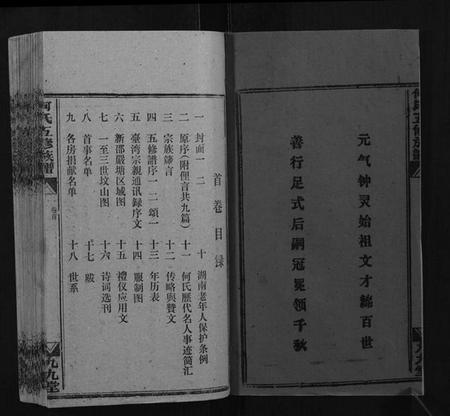 元气钟灵始祖文才绵百世
善行足式后嗣冠冕领千秋
首卷目录
一 封面一 二
二 原序(附俚言共九篇)
三 宗族箴言
四 五修谱序一 二颂一
五 臺湾宗親通訊録序文
六 新邵嚴塘区域图
七 一至三世坟山图
八 首事名单
九 各房捐献名单
十 湖南老年人保护条例
十一 何氏歷代名人事迹简汇
十二 传略與贊文
十三 年历表
十四 服制图
十五 禮仪应用文
十六 诗词选刊
十七 跋
十八 世系
何氏五修族譜
卷首
九九堂